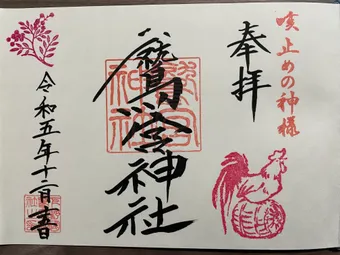 咳止めの神様
奉拝
鷲宮神社
令和五年十二月吉日